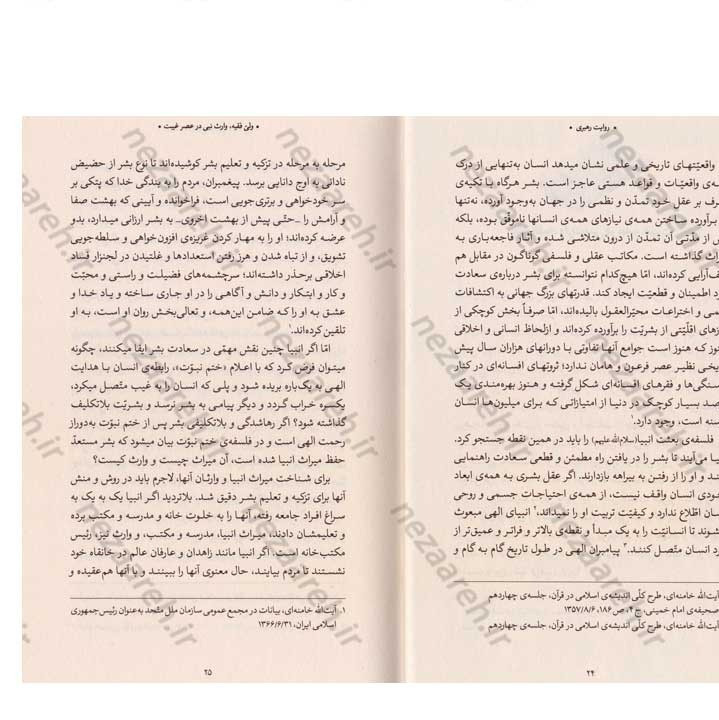 • روایت رهبری •
واقعیّتهای تاریخی و علمی نشان میدهد انسان به‌تنهایی از درک
ه‌ی واقعیّات و قواعد هستی عاجز است. بشر هرگاه با تکیه‌ی
رف بر عقل خود تمدّن و نظمی را در جهان به‌وجود آورده، نه‌تنها
برآورده ساختن همه‌ی نیازهای همه‌ی انسانها ناموفّق بوده، بلکه
از مدّتی آن تمدن از درون متلاشی شده و آثار فاجعه‌باری به
راث گذاشته است. مکاتب عقلی و فلسفی گوناگون در مقابل هم
ف‌آرایی کرده‌اند، امّا هیچ‌کدام نتوانسته برای بشر درباره‌ی سعادت
د اطمینان و قطعیّت ایجاد کند. قدرتهای بزرگ جهانی به اکتشافات
می و اختراعات محیّرالعقول بالیده‌اند، امّا صرفاً بخش کوچکی از
زهای اقلّیّتی از بشریّت را برآورده کرده‌اند و ازلحاظ انسانی و اخلاقی
وز که هنوز است جوامع آنها تفاوتی با دورانهای هزاران سال پیش
یخی نظیر عصر فرعون و هامان ندارد؛ ثروتهای افسانه‌ای در کنار
سنگی‌ها و فقرهای افسانه‌ای شکل گرفته و هنوز بهره‌مندی یک
صد بسیار کوچک در دنیا از امتیازاتی که برای میلیون‌ها انسان
سنه است، وجود دارد.۱
فلسفه‌ی بعثت انبیا(سلام‌الله‌علیهم) را باید در همین نقطه جستجو کرد.
یا می‌آیند تا بشر را در یافتن راه مطمئن و قطعی سعادت راهنمایی
ند و او را از رفتن به بیراهه بازدارند. اگر عقل بشری به همه‌ی ابعاد
ودی انسان واقف نیست، از همه‌ی احتیاجات جسمی و روحی
سان اطّلاع ندارد و کیفیّت تربیت او را نمیداند،۲ انبیای الهی مبعوث
شوند تا انسانیّت را به یک مبدأ و نقطه‌ی بالاتر و فراتر و عمیق‌تر از
رد انسان متّصل کننـد.۳ پیامبران الهی در طول تاریخ گام به گام و
آیت‌الله خامنه‌ای، طرح کلّی اندیشه‌ی اسلامی در قرآن، جلسه‌ی چهاردهم
صحیفه‌ی امام خمینی، ج ۴، ص ۱۸۶، ۱۳۵۷/۸/۶
آیت‌الله خامنه‌ای، طرح کلّی اندیشه‌ی اسلامی در قرآن، جلسه‌ی چهاردهم
۲۴
• ولیّ فقیه، وارث نبی در عصر غیبت •
مرحله به مرحله در تزکیه و تعلیم بشر کوشیده‌اند تا نوع بشر از حضیض
نادانی به اوج دانایی برسد. پیغمبران، مردم را به بندگی خدا که پتکی بر
سر خودخواهی و برتری‌جویی است، فراخوانده و آیینی که بهشت صفا
و آرامش را _حتّی پیش از بهشت اخروی_ به بشر ارزانی میدارد، بدو
عرضه کرده‌اند؛ او را به مهار کردن غریزه‌ی افزون‌خواهی و سلطه‌جویی
تشویق، و از تباه شدن و هرز رفتن استعدادها و غلتیدن در لجنزار فساد
اخلاقی برحذر داشته‌اند؛ سرچشمه‌های فضیلت و راستی و محبّت
و کار و ابتکار و دانش و آگاهی را در او جاری ساخته و یاد خدا و
عشق به او را که ضامن این‌همه، و تعالی‌بخش روان او است، به او
تلقین کرده‌اند.۱
امّا اگر انبیا چنین نقش مهمّی در سعادت بشر ایفا میکنند، چگونه
میتوان فرض کرد که با اعلام «ختم نبوّت»، رابطه‌ی انسان با هدایت
الهی به‌یک‌باره بریده شود و پلی که انسان را به غیب متّصل میکرد،
یکسره خراب گردد و دیگر پیامی به بشر نرسد و بشریّت بلاتکلیف
گذاشته شود؟ اگر رهاشدگی و بلاتکلیفی بشر پس از ختم نبوّت به‌دوراز
رحمت الهی است و در فلسفه‌ی ختم نبوّت بیان میشود که بشر مستعدّ
حفظ میراث انبیا شده است، آن میراث چیست و وارث کیست؟
برای شناخت میراث انبیا و وارثان آنها، لاجرم باید در روش و منش
آنها برای تزکیه و تعلیم بشر دقیق شد. بلاتردید اگر انبیا یک به یک به
سراغ افراد جامعه رفته، آنها را به خلوت خانه و مدرسه و مکتب برده
و تعلیمشان دادند، میراث انبیا، مدرسه و مکتب، و وارث نیز، رئیس
مکتب‌خانه است. اگر انبیا مانند زاهدان و عارفان عالم در خانقاه خود
نشستند تا مردم بیایند، حال معنوی آنها را ببینند و با آنها هم‌عقیده و
۱. آیت‌الله خامنه‌ای، بیانات در مجمع عمومی سازمان ملل متّحد به‌عنوان رئیس‌جمهوری
اسلامی ایران، ۱۳۶۶/۶/۳۱
۲۵
nezaareh.ir